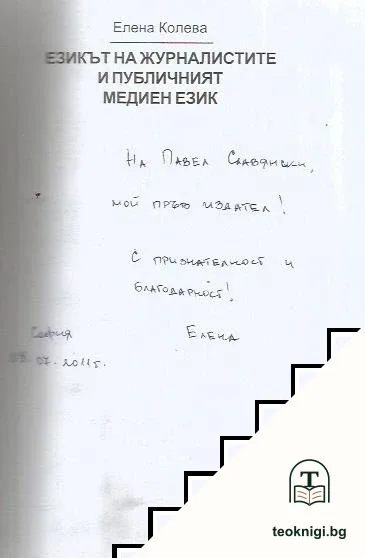 Елена Колева
ЕЗИКЪТ НА ЖУРНАЛИСТИТЕ
И ПУБЛИЧНИЯТ
МЕДИЕН ЕЗИК
На Павел Славянски,
мой пръв издател!
С признателност и
благодарност!
Елена
София
07.2011г.
T
teoknigi.bg